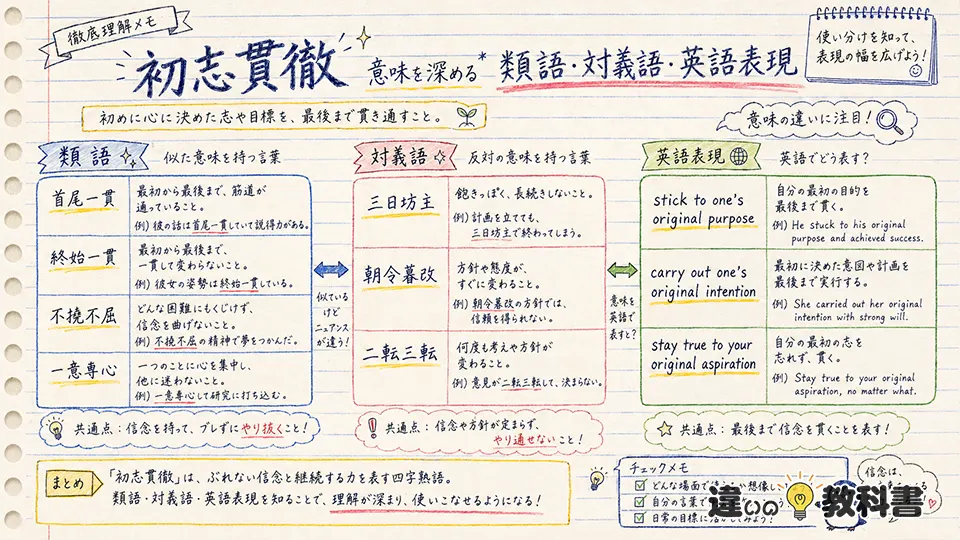 徹底理解メモ
初志貫徹 意味を深める* 類語・対義語・英語表現
使い分けを知って、
表現の幅を広げよう!
初めに心に決めた志や目標を、最後まで貫き通すこと。
意味の違いに注目!
類語 似た意味を持つ言葉
首尾一貫
最初から最後まで、筋道が
通っていること。
例) 彼の話は首尾一貫していて説得力がある。
終始一貫
最初から最後まで、
一貫して変わらないこと。
例) 彼女の姿勢は終始一貫している。
不撓不屈
どんな困難にもくじけず、
信念を曲げないこと。
例) 不撓不屈の精神で夢をつかんだ。
一意専心
一つのことに心を集中し、
他に迷わないこと。
例) 一意専心して研究に打ち込む。
共通点:信念を持って、ブレずにやり抜くこと!
似ている
けど
ニュアンス
が違う!
対義語 反対の意味を持つ言葉
三日坊主
飽きっぽく、長続きしないこと。
例) 計画を立てても、
三日坊主で終わってしまう。
朝令暮改
方針や態度が、
すぐに変わること。
例) 朝令暮改の方針では、
信頼を得られない。
二転三転
何度も考えや方針が
変わること。
例) 意見が二転三転して、決まらない。
共通点:信念や方針が定まらず、
やり通せないこと!
意味を
英語で
表すと?
英語表現 英語でどう表す?
stick to one's
original purpose
自分の最初の目的を
最後まで貫く。
例) He stuck to his original
purpose and achieved success.
carry out one's
original intention
最初に決めた意図や計画を
最後まで実行する。
例) She carried out her original
intention with strong will.
stay true to your
original aspiration
自分の最初の志を
忘れず、貫く。
例) Stay true to your original
aspiration, no matter what.
共通点:最後まで信念を貫くことを表す!
まとめ
「初志貫徹」は、ぶれない信念と継続する力を表す四字熟語。
類語・対義語・英語表現を知ることで、理解が深まり、使いこなせるようになる!
チェックメモ
どんな場面で
自分の言葉で
日常の目標に
信念は、
違いの教科書